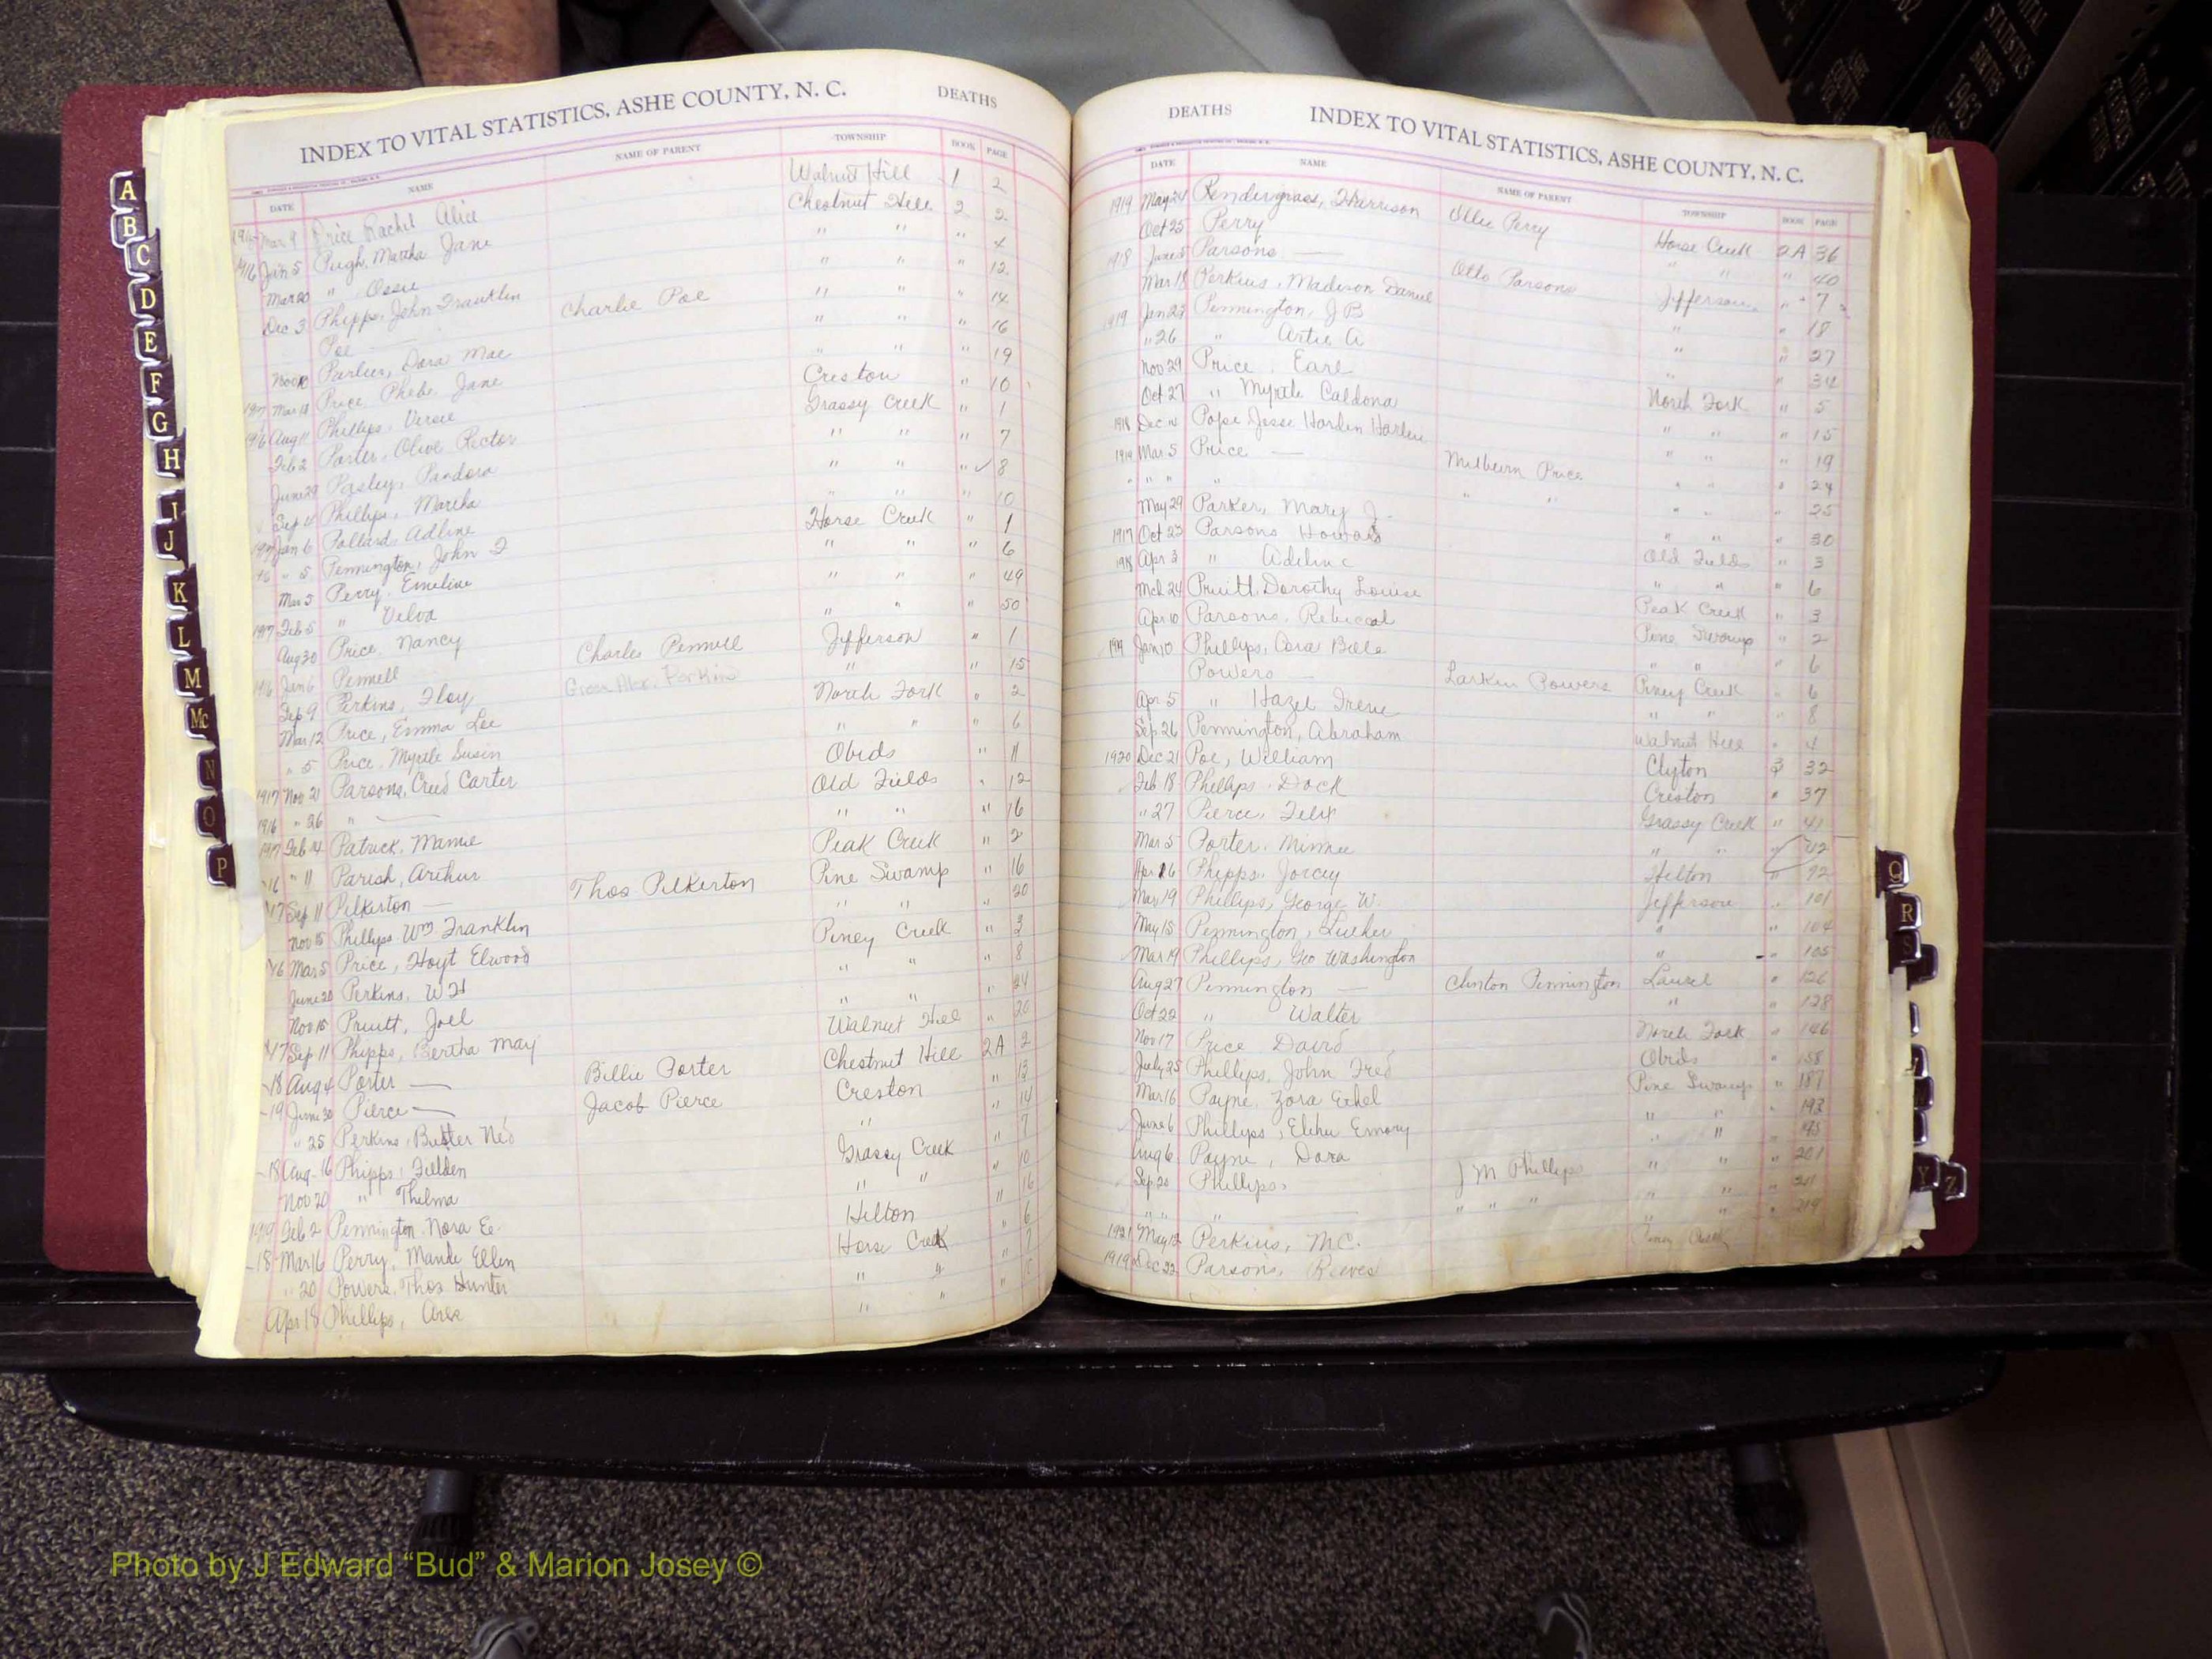 INDEX TO VITAL STATISTICS, ASHE COUNTY, N. C. DEATHS
DATE NAME NAME OF PARENT TOWNSHIP BOOK PAGE
Mar 9 Price Rachel Alice Walnut Hill 1 2
1916 Jan 5 Pugh, Martha Jane Chestnut Hill 2 2
Mar 20 " Ossie " " " 4
Dec 3 Phipps, John Franklin " " " 12
Poe — Charlie Poe " " " 14
Parlier, Dora Mae " " " 16
1917 Mar 18 Price, Phebe Jane " " " 19
1916 Aug 11 Phillips, Versie Creston " 10
Feb 2 Porter, Olive Rector Grassy Creek " 1
June 29 Pasley, Pandora " " " 7
Sep 11 Phillips, Martha " " " ✓ 8
1917 Jan 6 Pollard, Adline " " " 10
" 5 Pennington, John Horse Creek " 1
Mar 5 Perry, Emeline " " " 6
1917 Feb 5 " Velva " " " 49
Aug 30 Price, Nancy " " " 50
1916 Jan 6 Pennell Charles Pennell Jefferson " 1
Sep 9 Perkins, Floy " " 15
Mar 12 Price, Emma Lee North Fork " 2
" 5 Price, Myrtle Susin " " 6
1917 Nov 21 Parsons, Creed Carter Obids " 11
1916 " 26 " — Old Fields " 12
1917 Feb 4 Patrick, Mamie " " " 16
16 " 11 Parish, Arthur Peak Creek " 2
17 Sep 11 Pilkerton — Thos Pilkerton Pine Swamp " 16
Nov 15 Phillips Wm Franklin " " " 20
16 Mar 5 Price, Hoyt Elwood Piney Creek " 3
June 20 Perkins, W H " " " 8
Nov 15 Pruitt, Joel " " " 24
17 Sep 11 Phipps, Bertha May Walnut Hill " 20
18 Aug 4 Porter — Billie Porter Chestnut Hill 2A 2
19 June 30 Pierce — Jacob Pierce Creston " 13
" 25 Perkins, Buster Ned " " 14
18 Aug 16 Phipps, Fielden Grassy Creek " 7
Nov 20 " Thelma " " " 10
1919 Feb 2 Pennington Nora E. Hilton " 16
18 Mar 16 Perry, Maude Ellen Horse Creek " 6
" 20 Powers, Thos Hunter " " " 7
Apr 18 Phillips, " " "
DEATHS INDEX TO VITAL STATISTICS, ASHE COUNTY, N. C.
DATE NAME NAME OF PARENT TOWNSHIP BOOK PAGE
1919 May 24 Pendergrass, Harrison Horse Creek 2A 36
Oct 25 Perry Ollie Perry " " " 40
1918 June 5 Parsons — Otto Parsons Jefferson " 7
Mar 18 Perkins, Madison Daniel " " 18
1919 Jan 27 Pennington, J B " " 27
" 26 " Artie A " " 34
Nov 29 Price, Earl North Fork " 5
Oct 27 " Myrtle Caldona " " " 15
1918 Dec Pope Jesse Harden " " " 19
1919 Mar 5 Price — Milburn Price " " " 24
" " " " " " " " " 25
May 29 Parker, Mary J. " " " 30
1917 Oct 23 Parsons Howard Old Fields " 3
1918 Apr 3 " Adeline " " " 6
Mch 24 Pruitt, Dorothy Louise Peak Creek " 3
Apr 10 Parsons, Pine Swamp " 2
1919 Jan 10 Phillips, Cora Belle " " " 6
Powers — Larkin Powers Piney Creek " 6
Apr 5 " Hazel Irene " " " 8
Sep 26 Pennington, Abraham Walnut Hill " 4
1920 Dec 21 Poe, William Clyton 3 32
Feb 18 Phillips, Dock Creston " 37
" 27 Pierce, Felix Grassy Creek " 41
Mar 5 Porter, Minnie " " " 42
Apr 16 Phipps, Joicey Hilton " 72
Mar 19 Phillips, George W. Jefferson " 101
May 15 Pennington, Luther " " 104
Mar 19 Phillips, Geo Washington " " 105
Aug 27 Pennington — Clinton Pennington Laurel " 126
Oct 22 " Walter " " 128
Nov 17 Price David North Fork " 146
July 25 Phillips, John Fred Obids " 158
Mar 16 Payne, Zora Ethel Pine Swamp " 187
June 6 Phillips, Elihu Emory " " " 193
Aug 6 Payne, Dora " " " 195
Sep 20 Phillips, J M Phillips " " " 201
" " " — " " " " " "
1921 May 12 Perkins, M.C. Piney Creek
1919 Dec 22 Parsons, Reeves
A
B
C
D
E
F
G
H
I
J
K
L
M
Mc
N
O
P
Q
R
S
Y
Z
VITAL STATISTICS
1963
Photo by J Edward “Bud” & Marion Josey ©